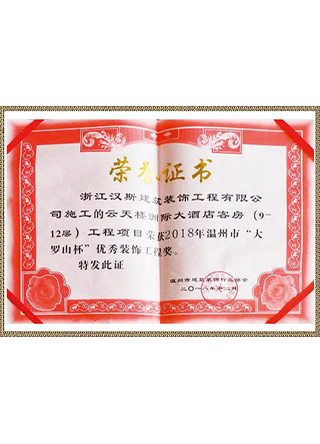 荣誉证书
浙江汉斯建筑装饰工程有限公
司施工的云天楼洲际大酒店客房（9-
12层）工程项目荣获2018年温州市“大
罗山杯”优秀装饰工程奖。
特发此证
温州市建筑装饰行业协会
二〇一八年十二月